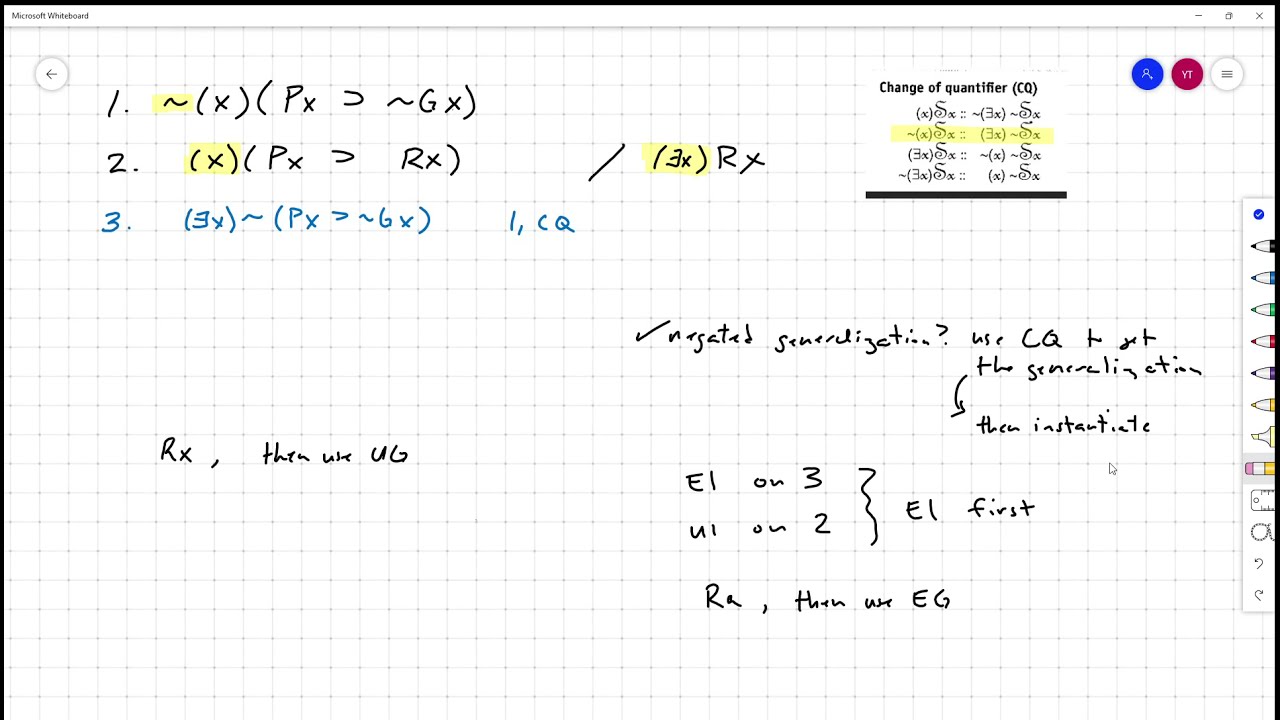 Microsoft Whiteboard
YT
1. ~(x)(Px ⊃ ~Gx)
2. (x)(Px ⊃ Rx) / (∃x)Rx
3. (∃x)~(Px ⊃ ~Gx) 1, CQ
Change of quantifier (CQ)
(x)𝓕x :: ~(∃x) ~𝓕x
~(x)𝓕x :: (∃x) ~𝓕x
(∃x)𝓕x :: ~(x) ~𝓕x
~(∃x)𝓕x :: (x) ~𝓕x
✓negated generalization? use CQ to get
the generalization
then instantiate
Rx, then use UG
EI on 3
UI on 2
EI first
Ra, then use EG